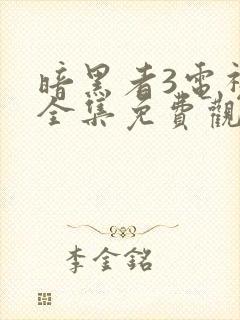 暗黑者3電視
全集免費觀
李金銘